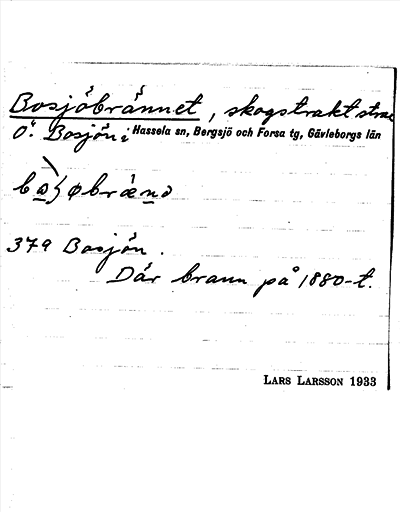 Bosjöbrännet, skogstrakt strax
Ö. Bosjön; Hassela sn, Bergsjö och Forsa tg, Gävleborgs län
379 Bosjön.
Där brann på 1880-t.
LARS LARSSON 1933